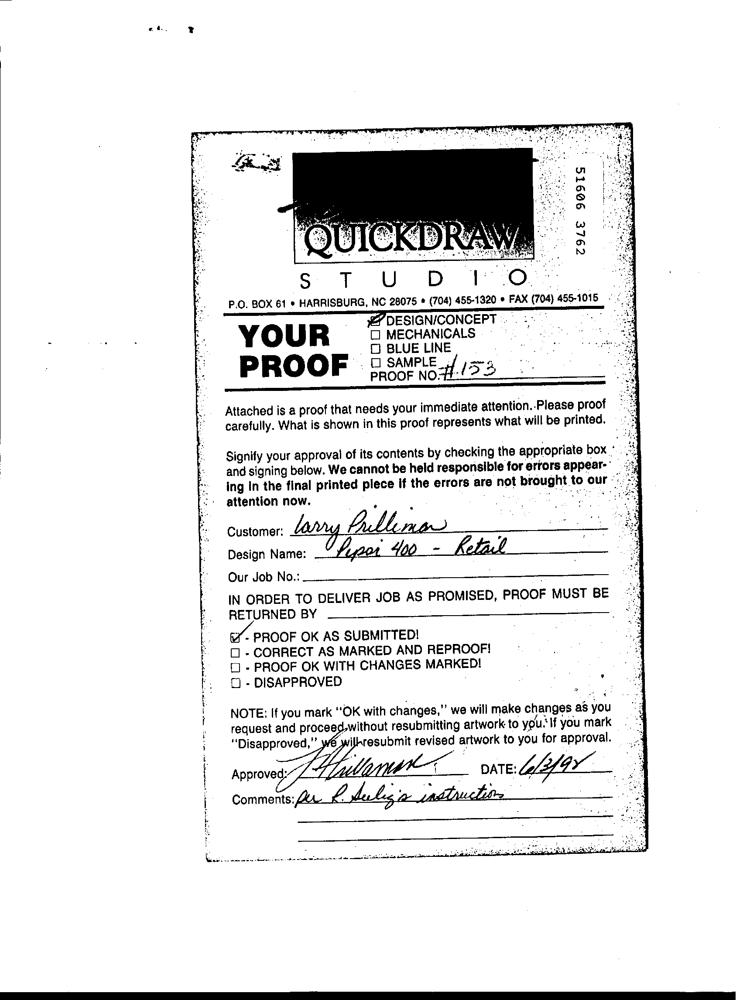 51606 3762
QUICKDRAW
STUDIO
P.O. BOX 61 • HARRISBURG, NC 28075 • (704) 455-1320 • FAX (704) 455-1015
YOUR
PROOF
☑ DESIGN/CONCEPT
☐ MECHANICALS
☐ BLUE LINE
☐ SAMPLE
PROOF NO. #153
Attached is a proof that needs your immediate attention. Please proof
carefully. What is shown in this proof represents what will be printed.
Signify your approval of its contents by checking the appropriate box
and signing below. We cannot be held responsible for errors appear-
ing in the final printed piece if the errors are not brought to our
attention now.
Customer: Larry Prilliman
Design Name: Pepsi 400 - Retail
Our Job No.:
IN ORDER TO DELIVER JOB AS PROMISED, PROOF MUST BE
RETURNED BY
☑ - PROOF OK AS SUBMITTED!
☐ - CORRECT AS MARKED AND REPROOF!
☐ - PROOF OK WITH CHANGES MARKED!
☐ - DISAPPROVED
NOTE: If you mark "OK with changes," we will make changes as you
request and proceed without resubmitting artwork to you. If you mark
"Disapproved," we will resubmit revised artwork to you for approval.
Approved: DATE: 6/3/92
Comments: Per R. Seelig's instructions